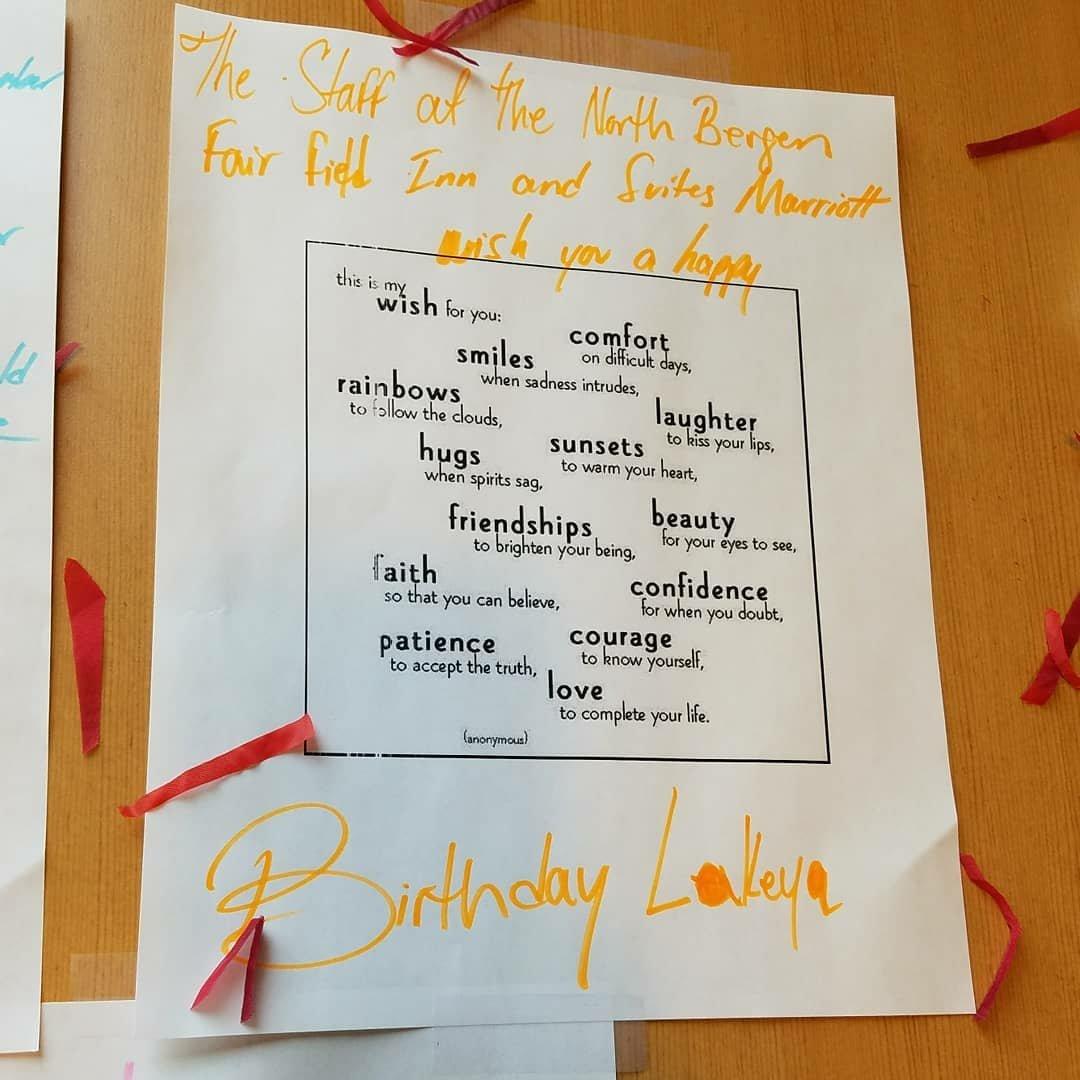 The Staff at the North Bergen
Fair field Inn and Suites Marriott
wish you a happy
this is my
wish for you:
comfort
on difficult days,
smiles
when sadness intrudes,
rainbows
to follow the clouds,
laughter
to kiss your lips,
sunsets
to warm your heart,
hugs
when spirits sag,
beauty
for your eyes to see,
friendships
to brighten your being,
faith
so that you can believe,
confidence
for when you doubt,
courage
to know yourself,
patience
to accept the truth,
love
to complete your life.
(anonymous)
Birthday Lakeya